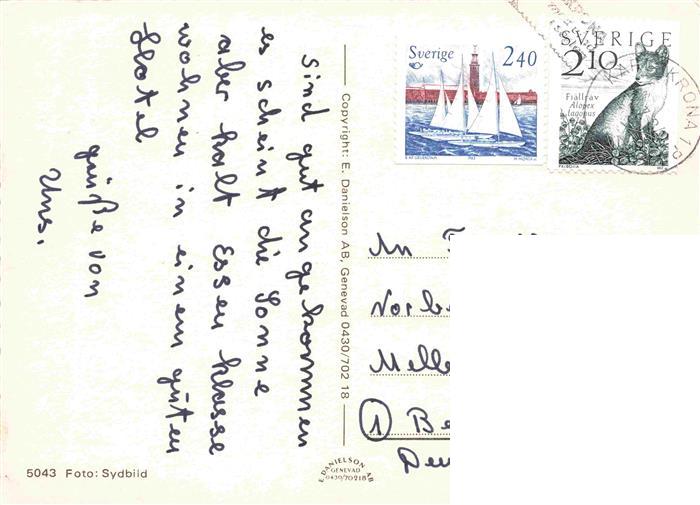 Sind gut angekommen
es scheint die Sonne
aber kalt Essen klasse
wohnen in einem guten
Hotel
grüße von
Uns.
Copyright: E. Danielson AB, Genevad 0430/702 18
Sverige 2 40
SVERIGE
2.10
Fjällräv
Alopex
lagopus
KRONA
An
Norb
Melle
1 Be
Deu
5043 Foto: Sydbild
E. DANIELSON AB
GENEVAD
0430/70218